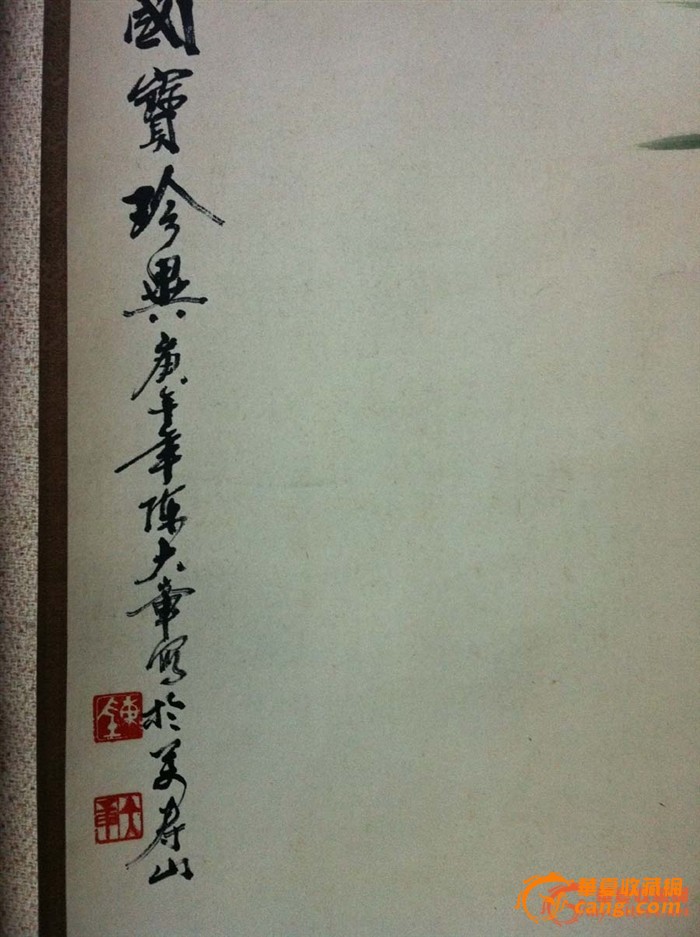 國寶珍異庚午年陳大章寫於萬壽山
大章
華夏收藏網
cang.com